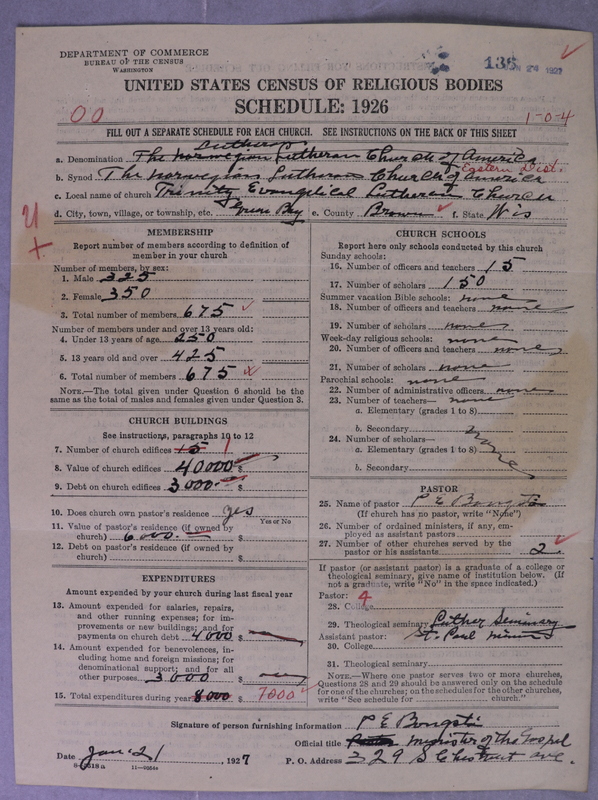 DEPARTMENT OF COMMERCE
BUREAU OF THE CENSUS
WASHINGTON
135
JAN 24 1927
UNITED STATES CENSUS OF RELIGIOUS BODIES
SCHEDULE: 1926
00
1-0-4
FILL OUT A SEPARATE SCHEDULE FOR EACH CHURCH. SEE INSTRUCTIONS ON THE BACK OF THIS SHEET
Lutheran
a. Denomination The Norwegian Lutheran Church of America
Eastern Dist.
b. Synod The Norwegian Lutheran Church of America
c. Local name of church Trinity Evangelical Lutheran Church
d. City, town, village, or township, etc. Green Bay e. County Brown f. State Wis
MEMBERSHIP
Report number of members according to definition of
member in your church
Number of members, by sex:
1. Male 325
2. Female 350
3. Total number of members 675
Number of members under and over 13 years old:
4. Under 13 years of age 250
5. 13 years old and over 425
6. Total number of members 675
NOTE.—The total given under Question 6 should be the
same as the total of males and females given under Question 3.
CHURCH BUILDINGS
See instructions, paragraphs 10 to 12
7. Number of church edifices 1
8. Value of church edifices 40000 $
9. Debt on church edifices 3000 $
10. Does church own pastor's residence yes
Yes or No
11. Value of pastor's residence (if owned by
church) 6000. $
12. Debt on pastor's residence (if owned by
church) $
EXPENDITURES
Amount expended by your church during last fiscal year
13. Amount expended for salaries, repairs,
and other running expenses; for im-
provements or new buildings; and for
payments on church debt 4000 $
14. Amount expended for benevolences, in-
cluding home and foreign missions; for
denominational support; and for all
other purposes 3000 $
15. Total expenditures during year 8000 $ 7000
CHURCH SCHOOLS
Report here only schools conducted by this church
Sunday schools:
16. Number of officers and teachers 15
17. Number of scholars 150
Summer vacation Bible schools: none
18. Number of officers and teachers none
19. Number of scholars none
Week-day religious schools: none
20. Number of officers and teachers none
21. Number of scholars none
Parochial schools: none
22. Number of administrative officers none
23. Number of teachers— none
a. Elementary (grades 1 to 8)
b. Secondary
24. Number of scholars— none
a. Elementary (grades 1 to 8)
b. Secondary
PASTOR
25. Name of pastor P E Bongsto
(If church has no pastor, write "None")
26. Number of ordained ministers, if any, em-
ployed as assistant pastors
27. Number of other churches served by the
pastor or his assistants 2
If pastor (or assistant pastor) is a graduate of a college or
theological seminary, give name of institution below. (If
not a graduate, write "No" in the space indicated.)
Pastor: 4
28. College
29. Theological seminary Luther Seminary
Assistant pastor: St. Paul Minn
30. College
31. Theological seminary
NOTE.—Where one pastor serves two or more churches,
Questions 28 and 29 should be answered only on the schedule
for one of the churches; on the schedules for the other churches,
write "See schedule for church."
Signature of person furnishing information P E Bongsto
Official title Minister of the Gospel
Date Jan. 21, 1927 P. O. Address 329 S Chestnut ave.
8-2518a 11-9854a